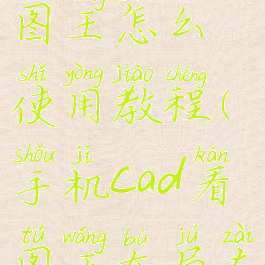 图王怎么
shǐ yòng jiào chéng
使用教程(
shǒu jī kàn
手机cad看
tú wáng bù jú zài
图王布局在